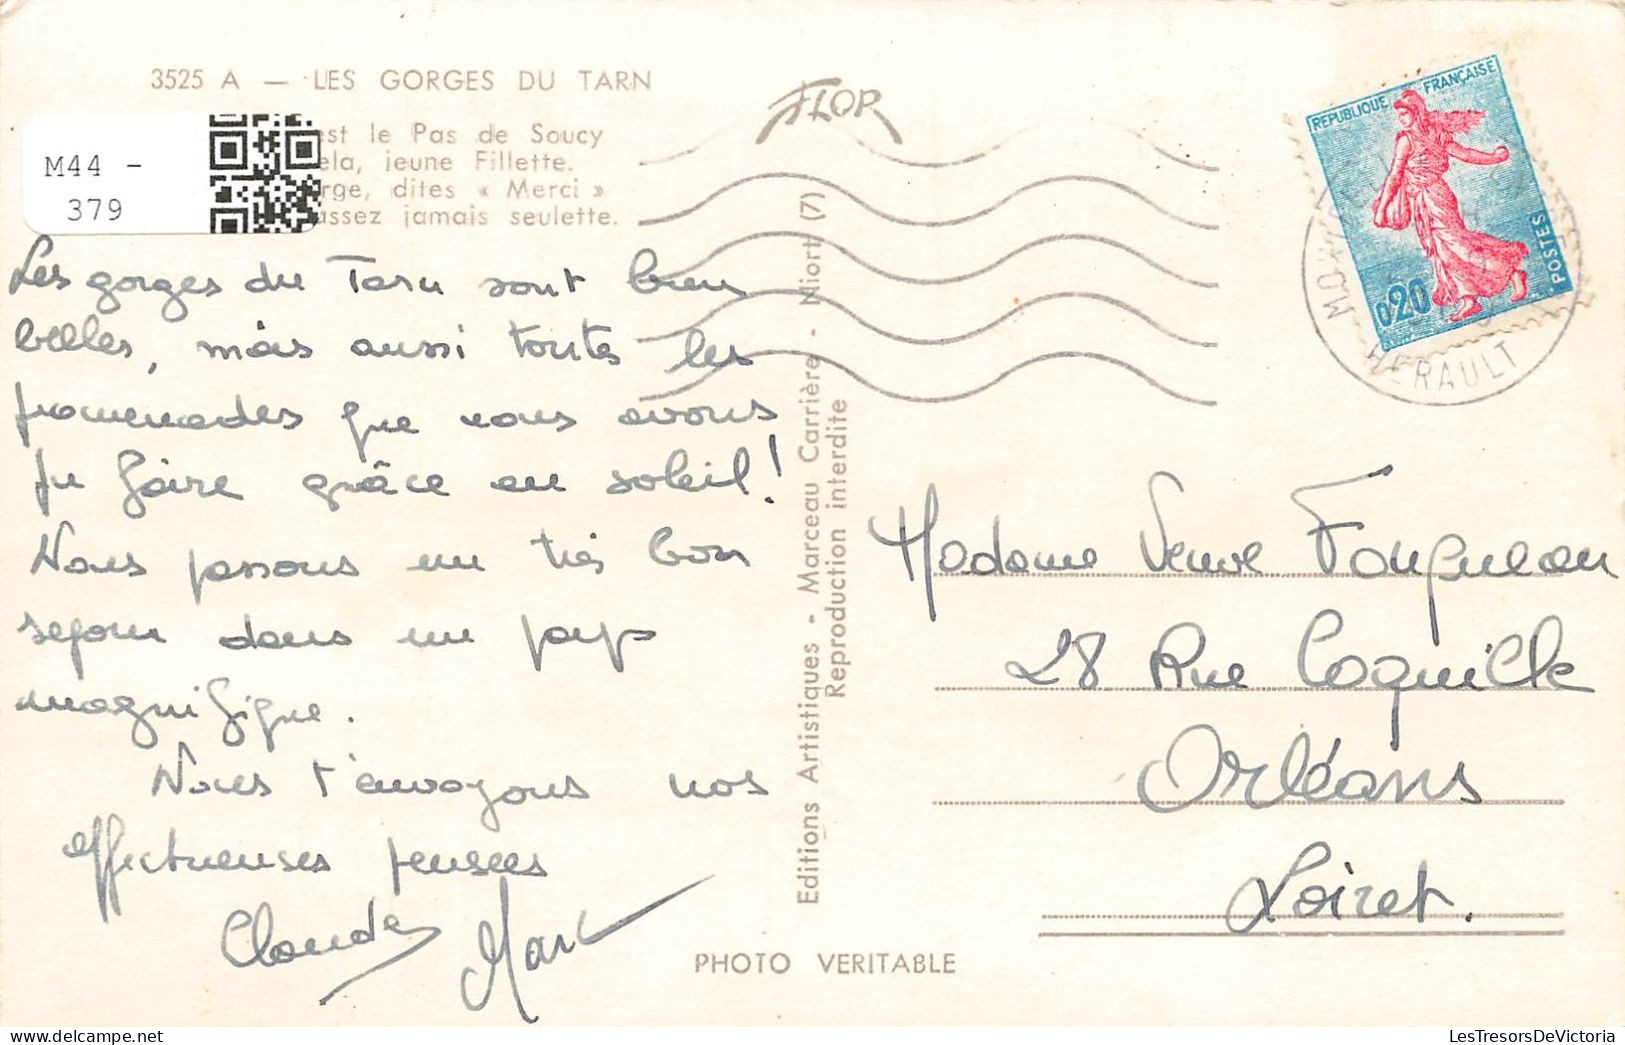 3525 A — LES GORGES DU TARN
est le Pas de Soucy
ela, jeune Fillette.
rge, dites « Merci »
assez jamais seulette.
M44 -
379
FLOR
Les gorges du Tarn sont bien
belles, mais aussi toutes les
promenades que nous avons
pu faire grâce au soleil!
Nous passons un très bon
sejour dans un pays
magnifique.
Nous t'envoyons nos
affectueuses pensées
Claude Marc
Editions Artistiques - Marceau Carrière - Niort (7)
Reproduction interdite
PHOTO VERITABLE
REPUBLIQUE FRANÇAISE
0,20
POSTES
HERAULT
Madame Veuve Fougueau
28 Rue Coquille
Orléans
Loiret.
LesTresorsDeVictoria